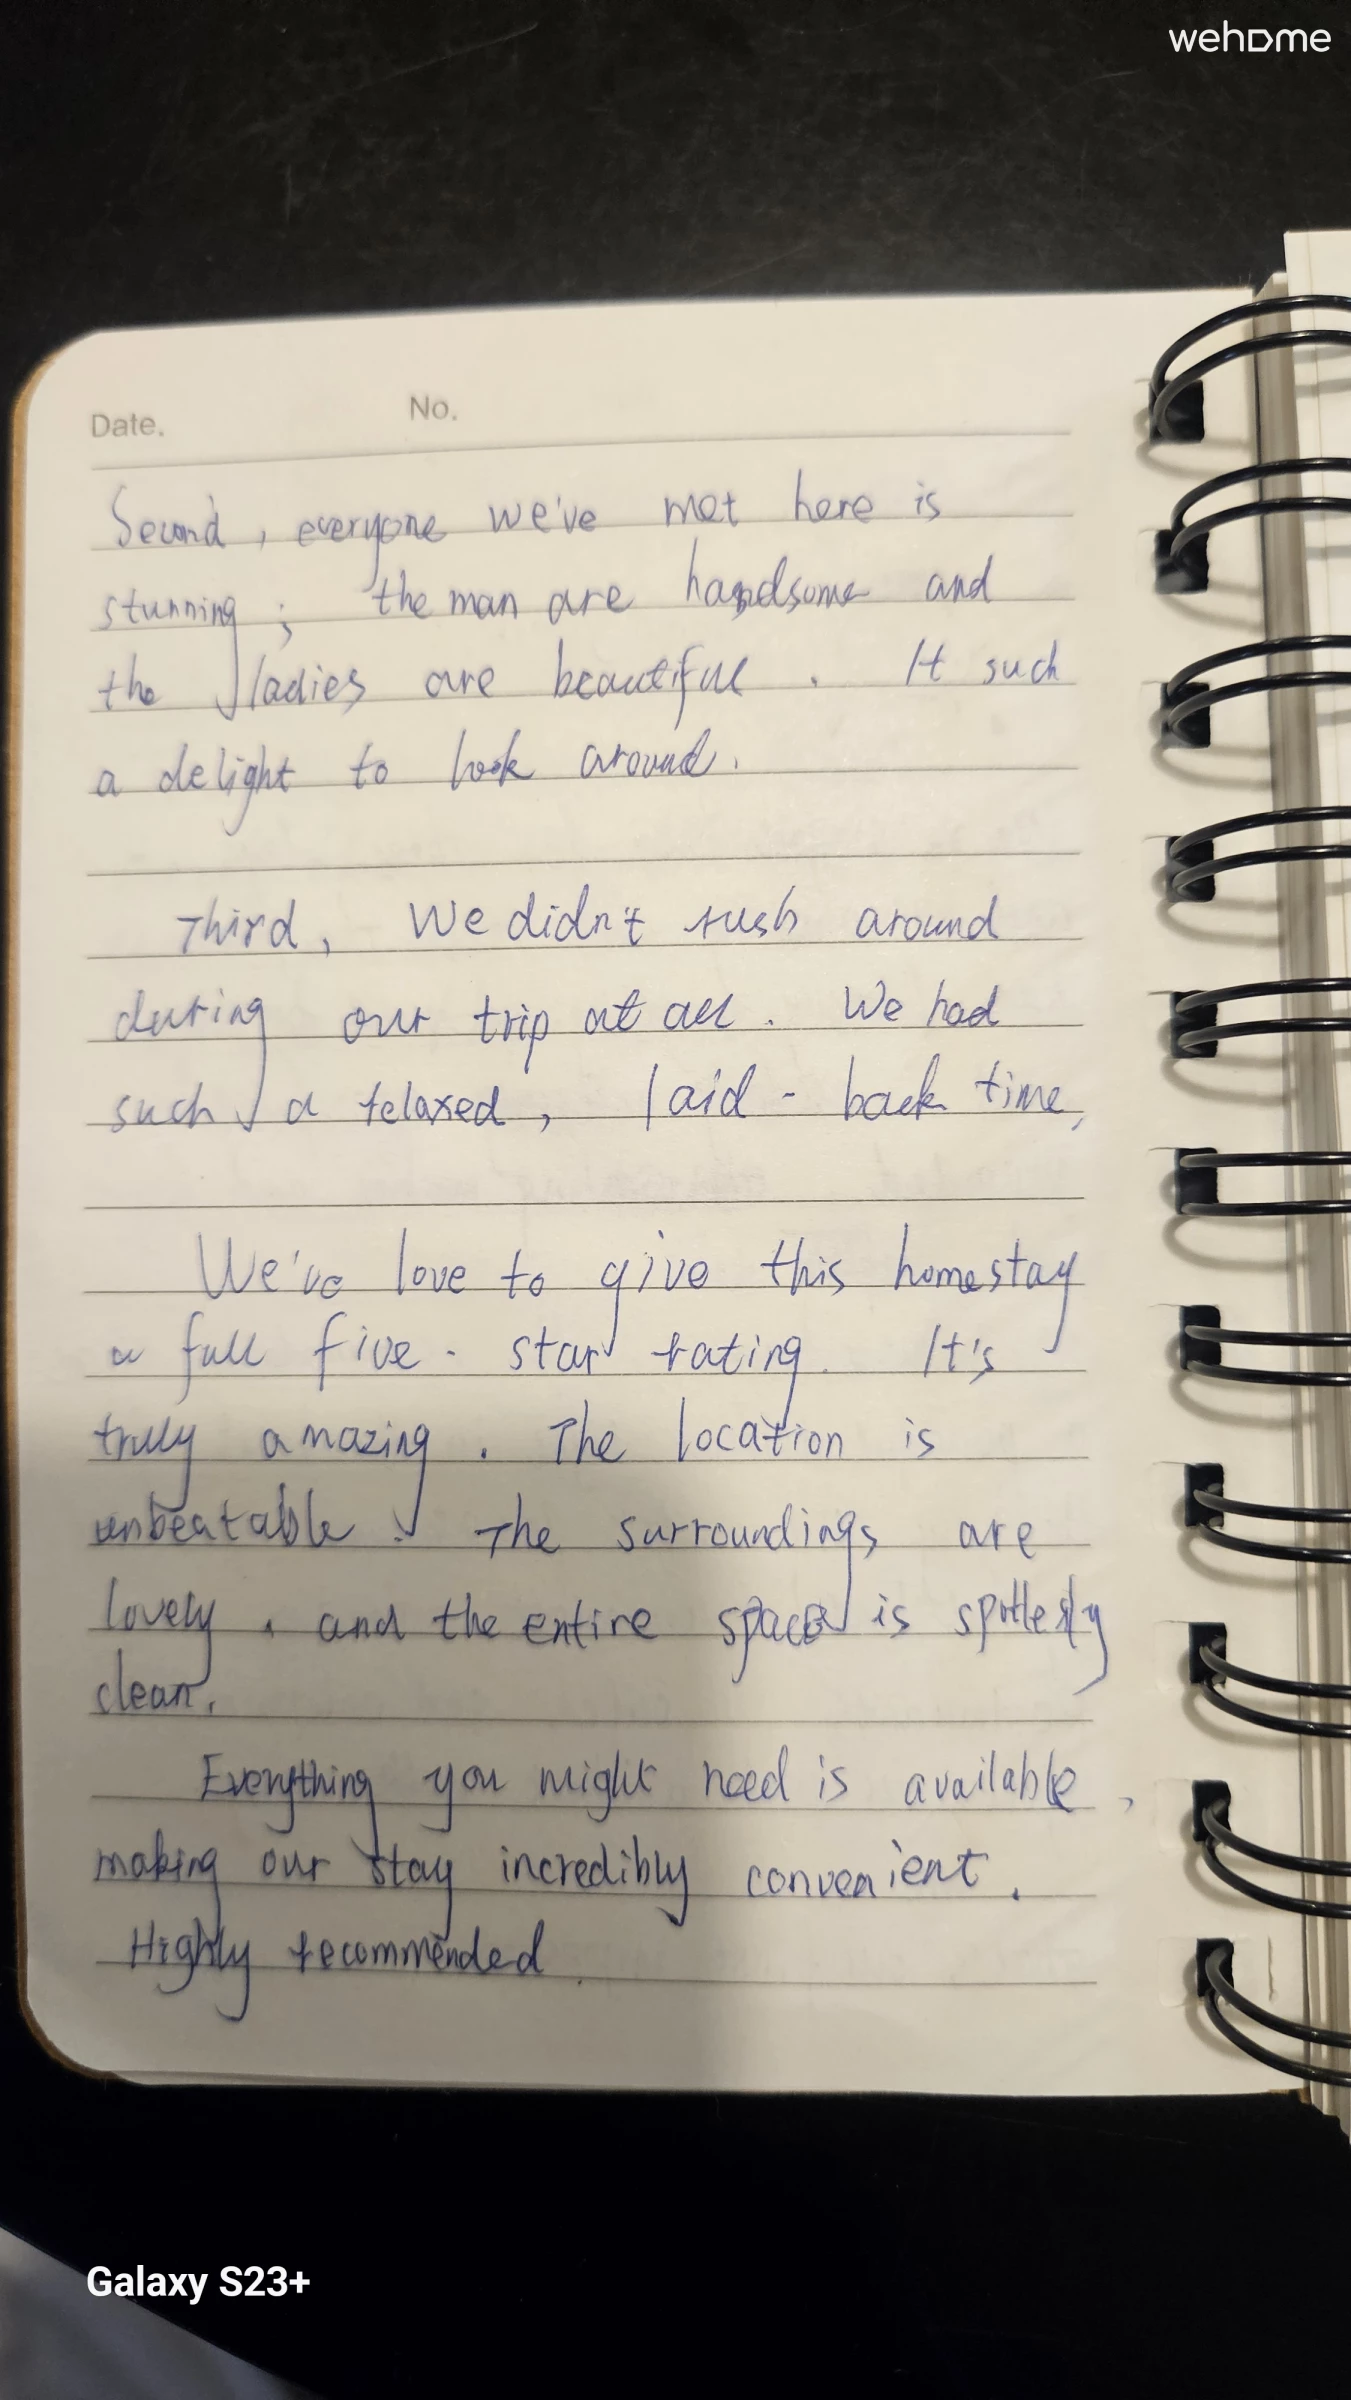 wehome
Date. No.
Second, everyone we've met here is
stunning; the man are handsome and
the ladies are beautiful. It such
a delight to look around.
Third, We didn't rush around
during our trip at all. We had
such a relaxed, laid-back time,
We've love to give this homestay
a full five-star rating. It's
truly amazing. The location is
unbeatable. The surroundings are
lovely, and the entire space is spotlessly
clean.
Everything you might need is available,
making our stay incredibly convenient.
Highly recommended.
Galaxy S23+